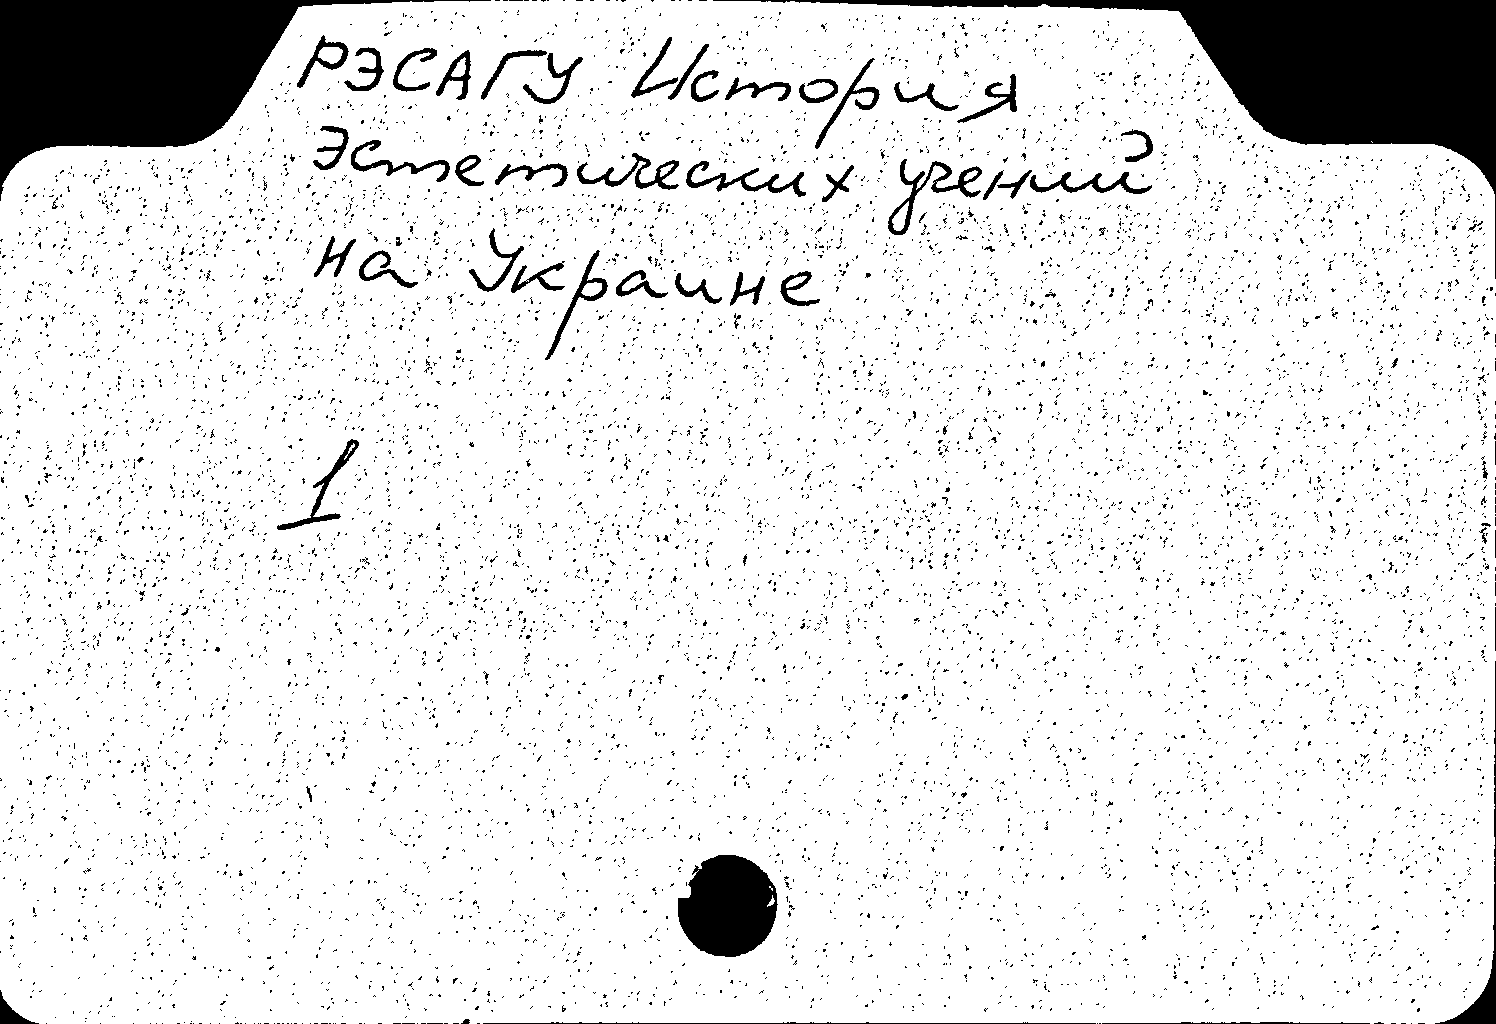 РЭСАГУ История
эстетических учений
на Украине
1